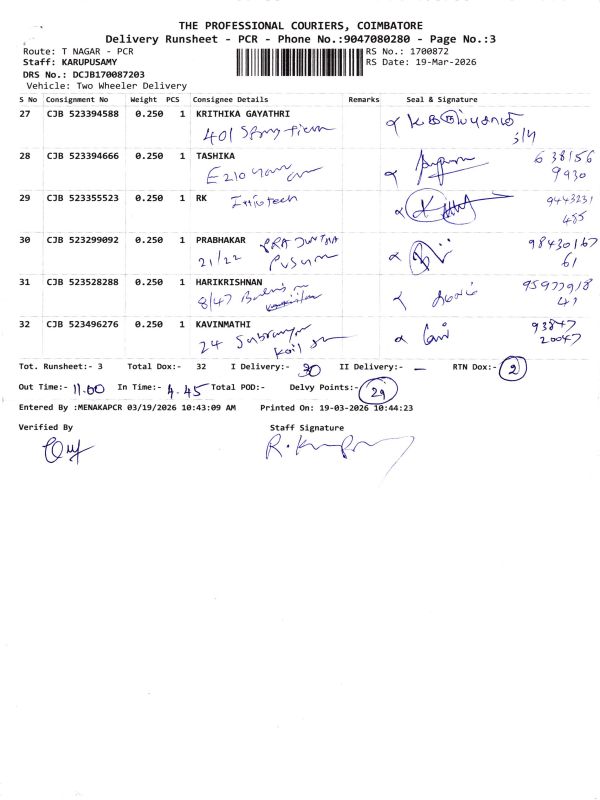 THE PROFESSIONAL COURIERS, COIMBATORE
Delivery Runsheet - PCR - Phone No.:9047080280 - Page No.:3
Route: T NAGAR - PCR RS No.: 1700872
Staff: KARUPUSAMY RS Date: 19-Mar-2026
DRS No.: DCJB170087203
Vehicle: Two Wheeler Delivery
S No Consignment No Weight PCS Consignee Details Remarks Seal & Signature
27 CJB 523394588 0.250 1 KRITHIKA GAYATHRI
401
28 CJB 523394666 0.250 1 TASHIKA 638156
E210 9930
29 CJB 523355523 0.250 1 RK Infotech 9443231
485
30 CJB 523299092 0.250 1 PRABHAKAR 98430167
21/22 61
31 CJB 523528288 0.250 1 HARIKRISHNAN 95977918
8/47 41
32 CJB 523496276 0.250 1 KAVINMATHI 93847
24 Koil 20047
Tot. Runsheet:- 3 Total Dox:- 32 I Delivery:- 30 II Delivery:- — RTN Dox:- 2
Out Time:- 11.00 In Time:- 4.45 Total POD:- Delvy Points:- 29
Entered By :MENAKAPCR 03/19/2026 10:43:09 AM Printed On: 19-03-2026 10:44:23
Verified By Staff Signature